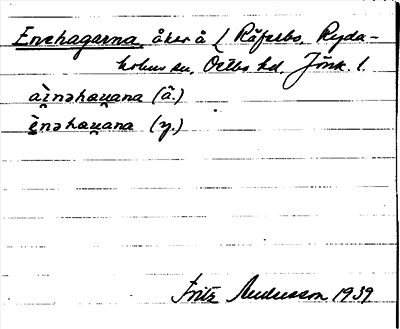 Enehagarna, åker å [ Råfarbo, Ryda-
holms sn, Östbo hd, Jönk. l.
ài̯nəhaɯ̯ana (ä.)
è̜nəhaɯ̯ana (y.)
Fritz Andersson 1939